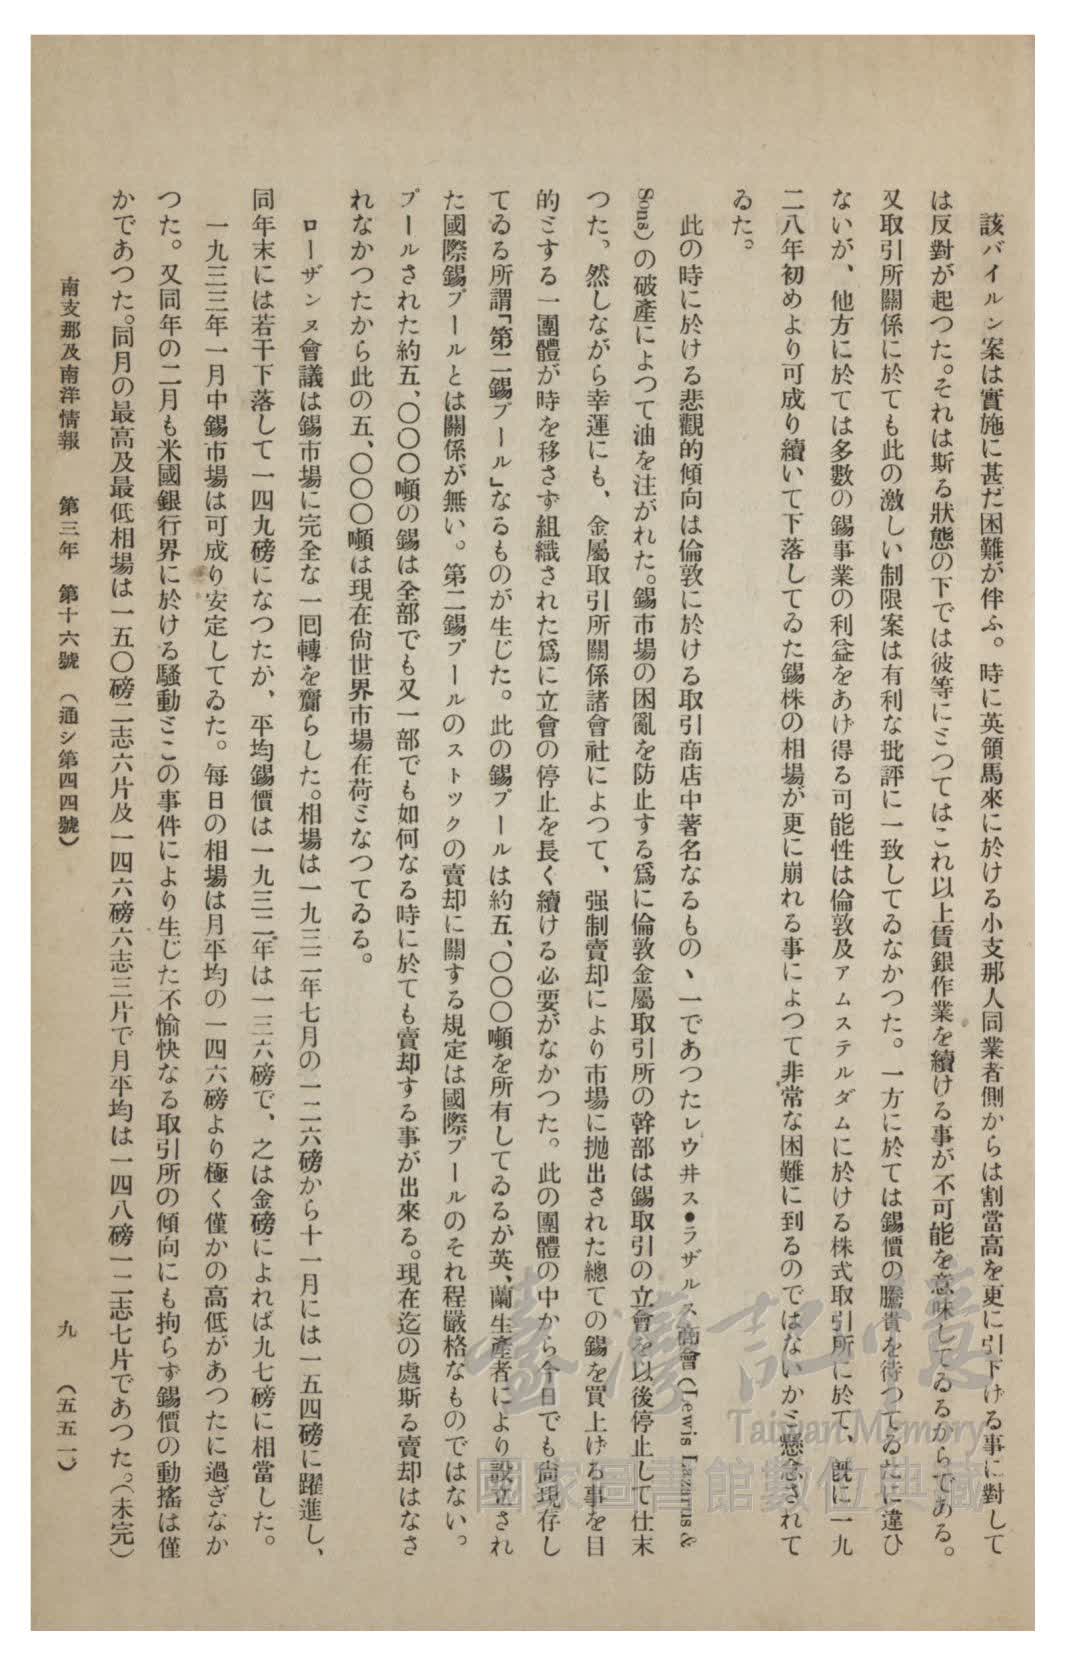 該バイルン案は實施に甚だ困難が伴ふ。時に英領馬來に於ける小支那人同業者側からは割當高を更に引下げる事に對して
は反對が起つた。それは斯る狀態の下では彼等にとつてはこれ以上賃銀作業を續ける事が不可能を意味してゐるからである。
又取引所關係に於ても此の激しい制限案は有利な批評に一致してゐなかつた。一方に於ては錫價の騰貴を待つてゐたに違ひ
ないが、他方に於ては多數の錫事業の利益をあげ得る可能性は倫敦及アムステルダムに於ける株式取引所に於て、旣に一九
二八年初めより可成り續いて下落してゐた錫株の相場が更に崩れる事によつて非常な困難に到るのではないかと懸念されて
ゐた。
此の時に於ける悲觀的傾向は倫敦に於ける取引商店中著名なるもの、一であつたレウ井ス●ラザルス商會(Lewis Lazarus &
Sons)の破產によつて油を注がれた。錫市場の困亂を防止する爲に倫敦金屬取引所の幹部は錫取引の立會を以後停止して仕末
つた、然しながら幸運にも、金屬取引所關係諸會社によつて、强制賣却により市場に抛出された總ての錫を買上げる事を目
的とする一團體が時を移さず組織された爲に立會の停止を長く續ける必要がなかつた。此の團體の中から今日でも尙現存し
てゐる所謂「第二錫プール」なるものが生じた。此の錫プールは約五、〇〇〇噸を所有してゐるが英、蘭生產者により設立され
た國際錫プールとは關係が無い。第二錫プールのストツクの賣却に關する規定は國際プールのそれ程嚴格なものではない。
プールされた約五、〇〇〇噸の錫は全部でも又一部でも如何なる時に於ても賣却する事が出來る。現在迄の處斯る賣却はなさ
れなかつたから此の五、〇〇〇噸は現在尙世界市場在荷となつてゐる。
ローザンヌ會議は錫市場に完全な一囘轉を齎らした。相場は一九三二年七月の一二六磅から十一月には一五四磅に躍進し、
同年末には若干下落して一四九磅になつたが、平均錫價は一九三二年は一三六磅で、之は金磅によれば九七磅に相當した。
一九三三年一月中錫市場は可成り安定してゐた。每日の相場は月平均の一四六磅より極く僅かの高低があつたに過ぎなか
つた。又同年の二月も米國銀行界に於ける騷動とこの事件により生じた不愉快なる取引所の傾向にも拘らず錫價の動搖は僅
かであつた。同月の最高及最低相場は一五〇磅二志六片及一四六磅六志三片で月平均は一四八磅一二志七片であつた。(未完)
南支那及南洋情報 第三年 第十六號 (通シ第四四號) 九 (五五一)
臺灣記憶
Taiwan Memory
國家圖書館數位典藏